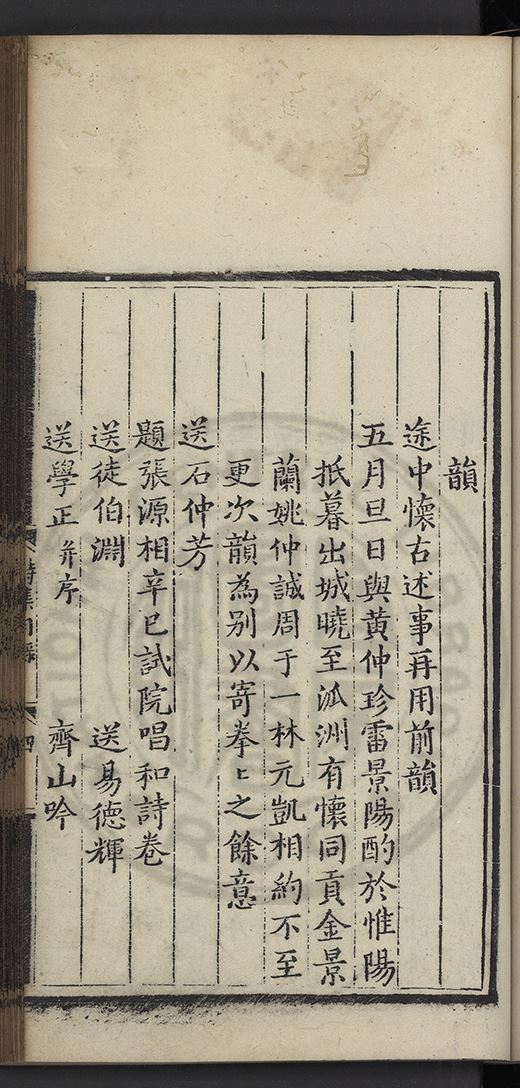 韻
途中懷古述事再用前韻
五月旦日與黃仲珍雷景陽酌於惟陽
抵暮出城曉至泒洲有懷同貢金景
蘭姚仲誠周于一林元凱相約不至
更次韻為别以寄拳〻之餘意
送石仲芳
題張源相辛巳試院唱和詩卷
送徒伯淵 送易德輝
送學正并序 齊山吟